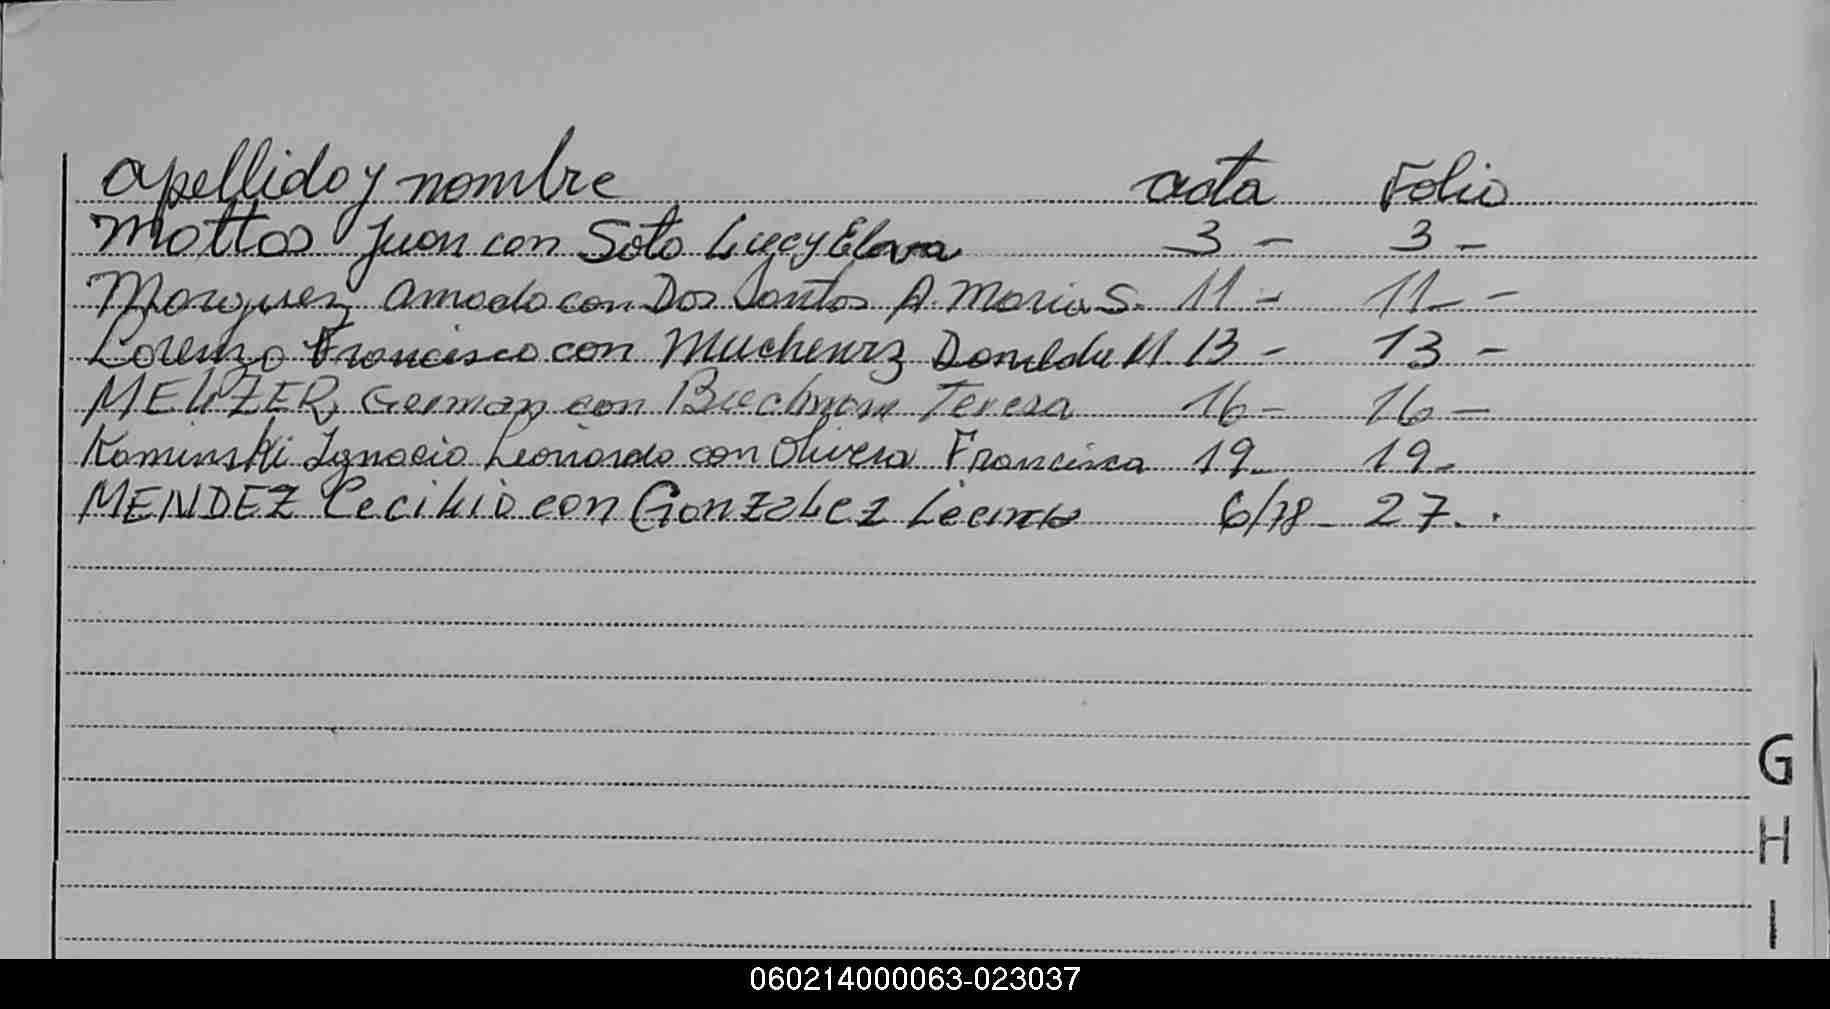 apellido y nombre acta Folio
Mattos Juan con Soto Lucy 3 - 3 -
Marquez Amado con Dos Santos A. Maria S. 11 - 11 -
Lorenzo Francisco con 13 - 13 -
MELZER, German con Teresa 16 - 16 -
Kaminski Ignacio Leonardo con Olivera Francisca 19 - 19 -
MENDEZ Cecilio con Gonzalez 6/78 - 27.
G
H
I
060214000063-023037